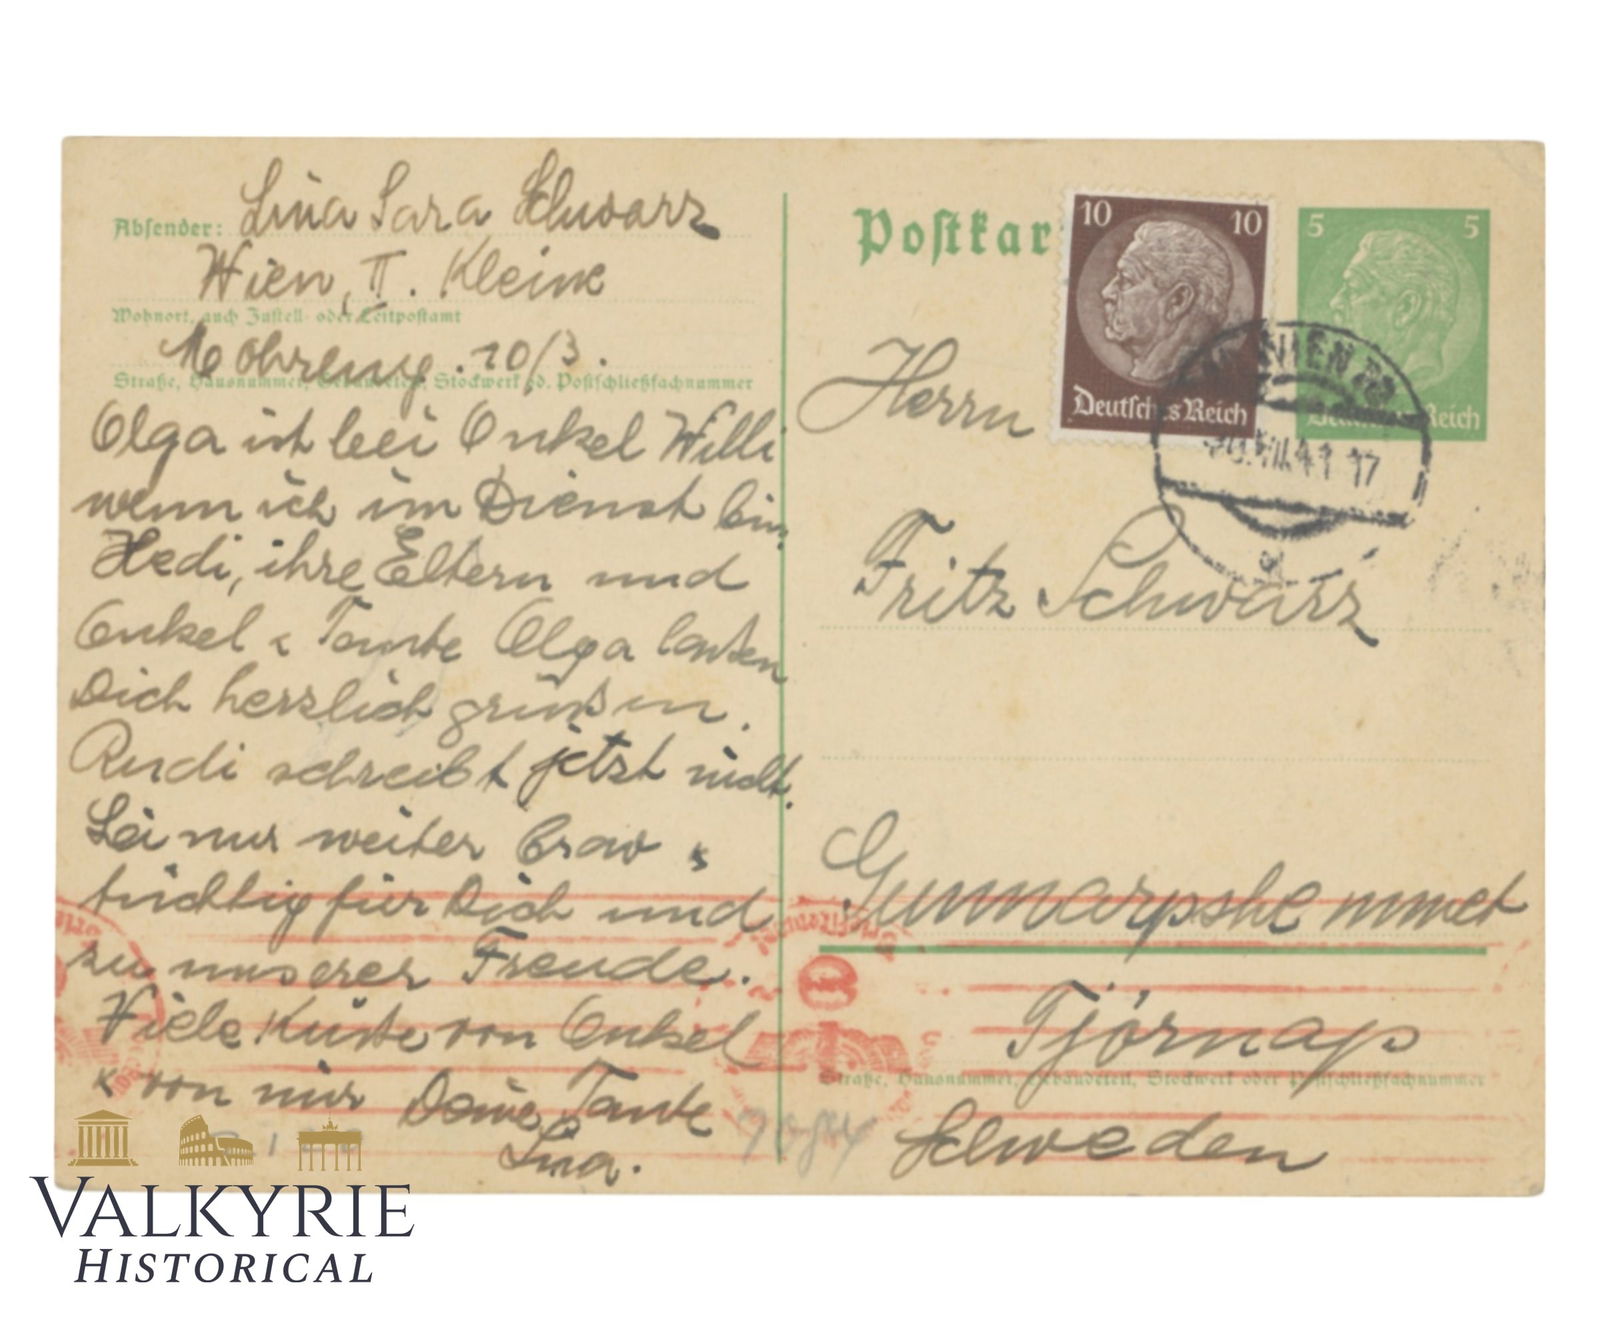 Absender: Lina Sara Schwarz
Wien, II. Kleine
Wohnort, auch Zustell- oder Leitpostamt
Mohreng. 10/3.
Straße, Hausnummer, Gebäudeteil, Stockwerk od. Postschließfachnummer
Olga ist bei Onkel Willi
wenn ich im Dienst bin.
Hedi, ihre Eltern und
Onkel & Tante Olga lassen
Dich herzlich grüßen.
Rudi schreibt jetzt nicht.
Sei nur weiter brav &
tüchtig für Dich und
zu unserer Freude.
Viele Küsse von Onkel
& von mir Deine Tante
Lina.
Postkar
10 10
Deutsches Reich
5 5
Reich
WIEN
41 17
Herrn
Fritz Schwarz
Gunnarpshemmet
Tjörnap
Straße, Hausnummer, Gebäudeteil, Stockwerk oder Postschließfachnummer
Schweden
VALKYRIE
HISTORICAL